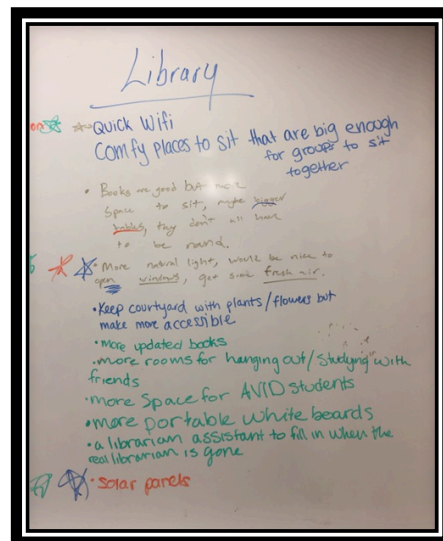 Library
Quick Wifi
Comfy places to sit that are big enough
for groups to sit
together
• Books are good but more
space to sit, maybe bigger
tables, they don't all have
to be round.
• More natural light, would be nice to
open windows, get some fresh air.
• Keep courtyard with plants/flowers but
make more accessible
• more updated books
• more rooms for hanging out/studying with
friends
• more space for AVID students
• more portable white boards
• a librarian assistant to fill in when the
real librarian is gone
• solar panels